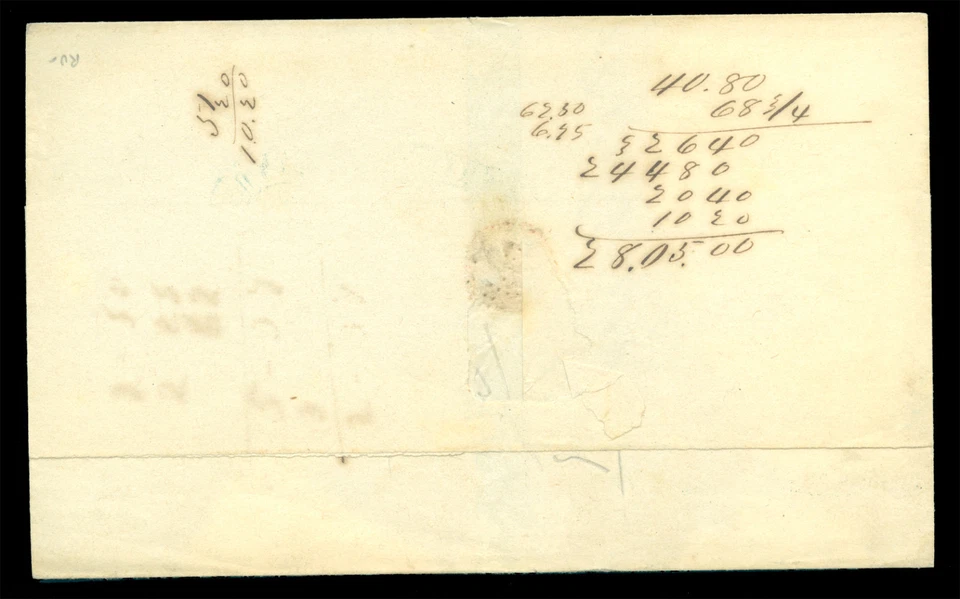 51
20
10.20
62.50
6.25
40.80
68 3/4
32640
24480
2040
1020
28.05.00